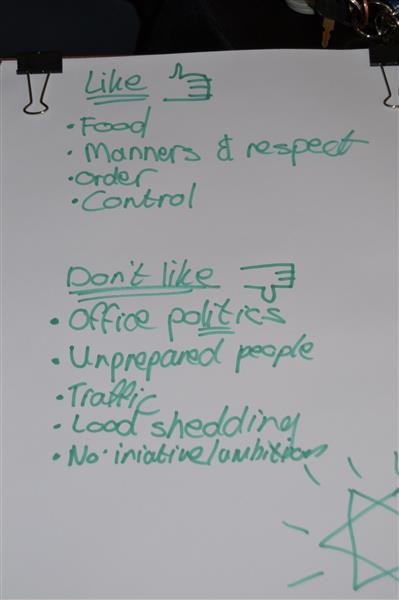 Like
• Food
• Manners & respect
• Order
• Control
Don't like
• Office politics
• Unprepared people
• Traffic
• Load shedding
• No iniative/ambition